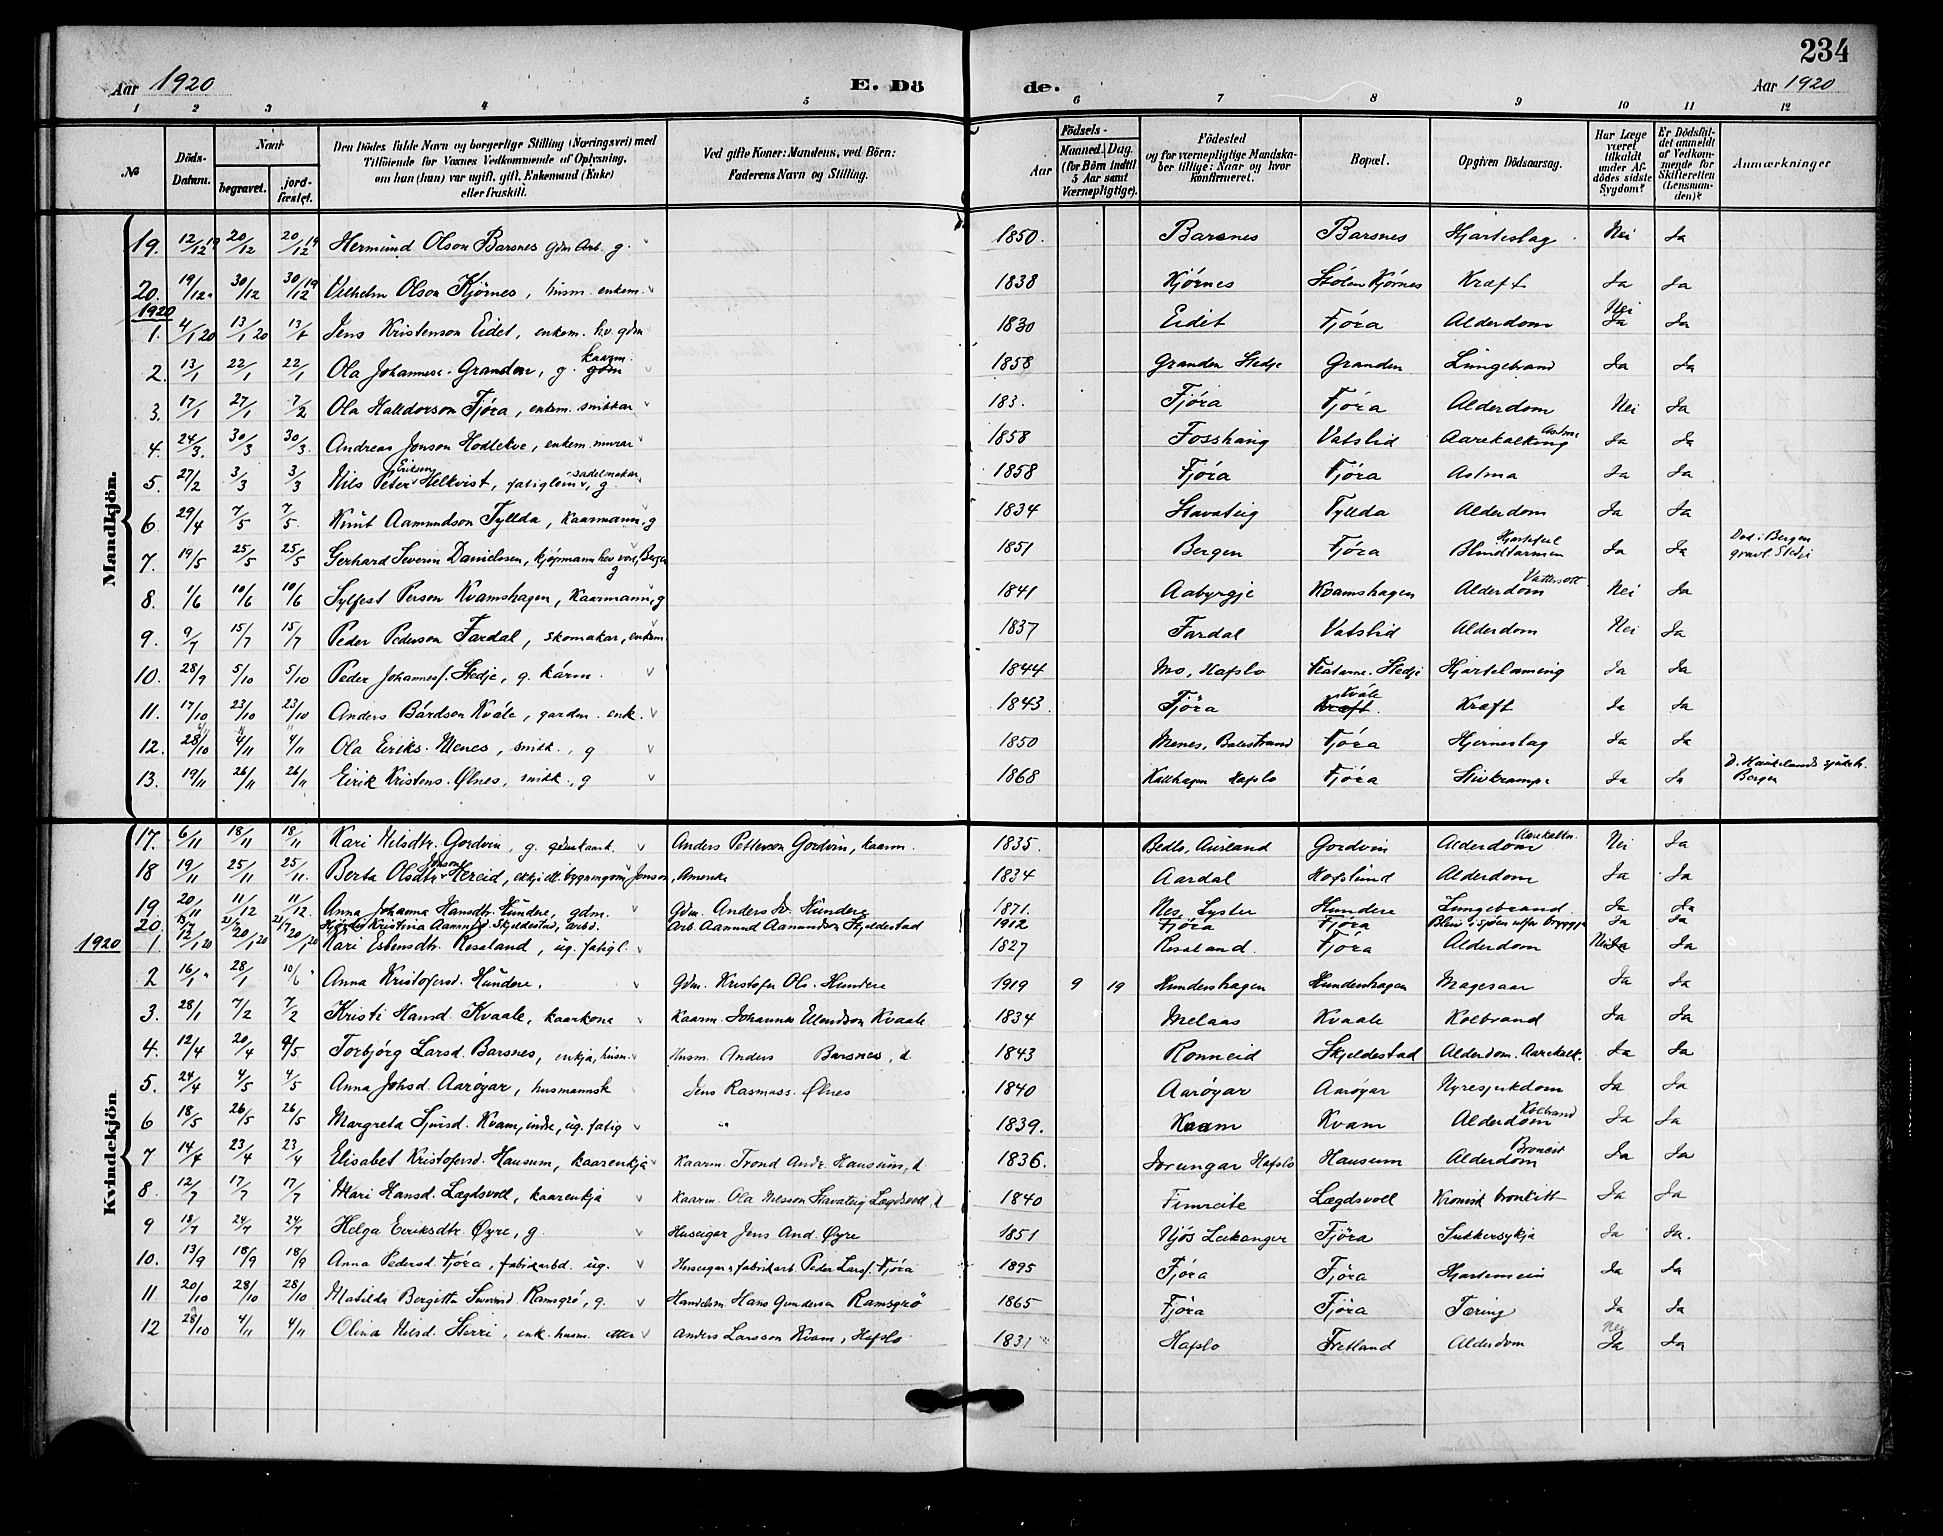 234
Aar 1920 E. Dö de. Aar 1920
1 2 3 4 5 6 7 8 9 10 11 12
№
Döds-Datum.
Naar
begravet.
jord-fæstet.
Den Dödes fulde Navn og borgerlige Stilling (Næringsvei) med
Tilföiende for Voxnes Vedkommende af Oplysning,
om han (hun) var ugift, gift, Enkemand (Enke)
eller fraskilt.
Ved gifte Koner: Mandens, ved Börn:
Faderens Navn og Stilling.
Aar
Födsels-
Maaned. Dag.
(for Börn indtil
5 Aar samt
Værnepligtige).
Födested
og for værnepligtige Mandska-
ber tillige: Naar og hvor
konfirmeret.
Bopæl.
Opgiven Dödsaarsag.
Har Læge
været
tilkaldt
under Af-
dödes sidste
Sygdom?
Er Dödsfal-
det anmeldt
af Vedkom-
mende for
Skifteretten
(Lensman-
den)?
Anmærkninger
Mandkjön.
19. 12/12 19 20/12 20/12 19 Hermund Olson Barsnes gdm Arb. g. 1850. Barsnes Barsnes Hjarteslag Nei Ja
20. 19/12 " 30/12 30/12 19 Vilhelm Olson Kjörnes, husm. enkem. 1838 Kjörnes Stölen Kjörnes Kræft Ja Ja
1920
1. 4/1 20 13/1 20 13/ Jens Kristenson Eidet, enkem. hv. gdm 1830 Eidet Fjöra Alderdom Nei Ja Ja
2. 13/1 22/1 22/1 Ola Johannese. Granden, g. gdm kaarm. 1858 Granden Stedje Granden Lungebrand Ja Ja
3. 17/1 27/1 7/2 Ola Halldorson Fjöra, enkem. snikkar 183. Fjöra Fjöra Alderdom Nei Ja
4. 24/3 30/3 30/3 Andreas Jonson Hodlekve, enkem. murar 1858 Fosshaug Vatslid Aarekalking Astma Ja Ja
5. 27/2 3/3 3/3 Nils Peter Eriksen Helkvist, fatiglem, sadelmakar g. 1858 Fjöra Fjöra Astma Ja Ja
6. 29/4 7/5 7/5 Knut Aamundson Tyllda, Kaarmann, g 1834 Stavateig Tyllda Alderdom Ja Ja
7. 19/5 25/5 25/5 Gerhard Severin Danielssen, kjöpmann hev vore i Bergen g 1851 Bergen Fjöra Blindtarmen Hjartefeil Ja Ja Död i Bergen gravl. Stedje
8. 1/6 10/6 10/6 Sylfest Person Kvamshagen, Kaarmann, g 1841 Aabyrgje Kvamshagen Alderdom Vattersott Nei Ja
9. 9/7 15/7 15/7 Peder Pederson Fardal, skomakar, enkem 1837 Fardal Vatslid Alderdom Nei Ja
10. 28/9 5/10 5/10 Peder Johannesf. Stedje, g. kárm. 1844 Mo, Hafslo Stedje Hjartelameing Ja Ja
11. 17/10 23/10 23/10 Anders Bárdson Kvále, gardm. enk. 1843 Fjöra Kræft. Kvále Kræft Ja Ja
12. 28/10 4/11 4/11 Ola Eiriks. Menes, snikk., g 1850 Menes, Balestrand Fjöra Hjerneslag Ja Ja
13. 19/11 26/11 26/11 Eirik Kristens. Ølnes, snikk., g 1868 Kallhagen Hafslo Fjöra Stivkrampe Ja Ja D. Haukelands sjukeh. Bergen
Kvindekjön
17. 6/11 18/11 18/11 Kari Nilsdtr. Gordvin, g. Anders Petterson Gordvin, kaarm. 1835. Bedle, Aurland Gordvin Alderdom Aarekalkn. Nei Ja
18 19/11 25/11 25/11. Berta Olsdtr. Jonson Hereid, ekkje Jonson, Amerika 1834 Aardal Hofslund Alderdom Ja Ja
19 20/11 11/12 11/12. Anna Johanna Hansdtr. Hundere, gdm. Gdm. Anders Hundere 1871. Nes, Lyster Hundere Lungebrand Ja Ja
20. 13/7 21/7 21/7 Kristina Aamundsd. Skjeldestad, arbd. Arb. Aamund Aamundson Skjeldestad 1912 Fjöra Fjöra Blev i sjöen utfor bryggje Ja Ja
1920 1. 12/1 20 20/1 20 20/1 20 Kari Esbensdtr. Roseland, ug. fatigl. 1827 Roseland. Fjöra Alderdom Nei Ja Ja
2 16/1 " 28/1 10/6 " Anna Kristofersd. Hundere. Gdm. Kristofer Ols. Hundere 1919 9 19 Hundershagen Hundershagen Magesaar Ja Ja
3. 28/1 7/2 7/2 Kristi Hansd. Kvaale, kaarkona Kaarm. Johannes Ellendson Kvaale 1834 Melaas Kvaale Kolbrand Ja Ja
4. 12/4 20/4 9/5 Torbjörg Larsd. Barsnes, enkja, husm. Husm. Anders Barsnes, d 1843 Ronneid Skjeldestad Alderdom. Aarekalk. Ja Ja
5. 24/4 4/5 4/5 Anna Johsd. Aaröyar, husmannsk Jens Rasmuss. Ølnes 1840 Aaröyar Aaröyar Nyresjukdom Ja Ja
6 18/5 26/5 26/5 Margreta Sjursd. Kvam, indre, ug. fatig " 1839. Kvam Kvam Alderdom Kolbrand Ja Ja
7 14/4 23/4 23/4 Elisabet Kristofersd. Hausum, kaarenkja Kaarm. Trond Andr. Hausum, d. 1836. Joranger Hafslo Hausum Alderdom Bronkit Ja Ja
8. 12/7 17/7 17/7 Mari Hansd. Lægdsvoll, kaarenkja Kaarm. Ola Nilsson Stavateig Lægdsvoll, d 1840 Fimreite Lægdsvoll Kronisk bronkitt Ja Ja
9 18/7 24/7 24/7 Helga Eiriksdtr. Øyre, g. Huseigar Jens And. Øyre 1851 Njös Leikanger Fjöra Sukkersykja Ja Ja.
10. 13/9 18/9 18/9 Anna Pedersd. Fjöra, fabrikarbd. ug. Huseigar, fabrikarb. Peder Larsf. Fjöra 1895 Fjöra Fjöra Hjartemein Ja Ja
11 20/10 28/10 28/10 Matilda Bergitta Ramsgrö, g. Handelsm. Hans Gunderson Ramsgrö 1865 Fjöra Fjöra Tæring Ja Ja
12 28/10 4/11 4/11 Olina Nilsd. Sterri, enk. husm. etter Anders Larsson Kvam, Hafslo 1831 Hafslo Fretland Alderdom Nei Ja Ja